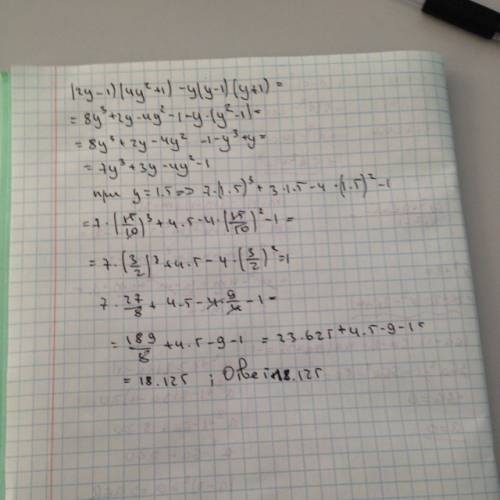 (2y-1)(4y²+1)-y(y-1)(y+1)=
=8y³+2y-4y²-1-y·(y²-1)=
=8y³+2y-4y²-1-y³+y=
=7y³+3y-4y²-1
при y=1.5=>7·(1.5)³+3·1.5-4·(1.5)²-1
=7·(15/10)³+4.5-4·(15/10)²-1=
=7·(3/2)³+4.5-4·(3/2)²=1
7·27/8+4.5-4·9/4-1=
=189/8+4.5-9-1=23.625+4.5-9-1=
=18.125; Ответ:18.125